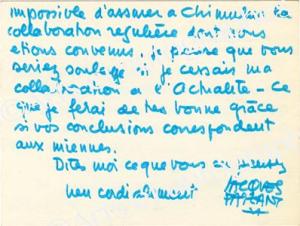 impossible d'assurer a
collaboration regulière dont nous
etions convenus, je pense que vous
seriez soulagé si je cessais ma
collaboration à l'Actualité - ce
que je ferai de très bonne grâce
si vos conclusions correspondent
aux miennes.
Dites moi ce que vous en pensez
bien cordialement
JACQUES
FAIZANT